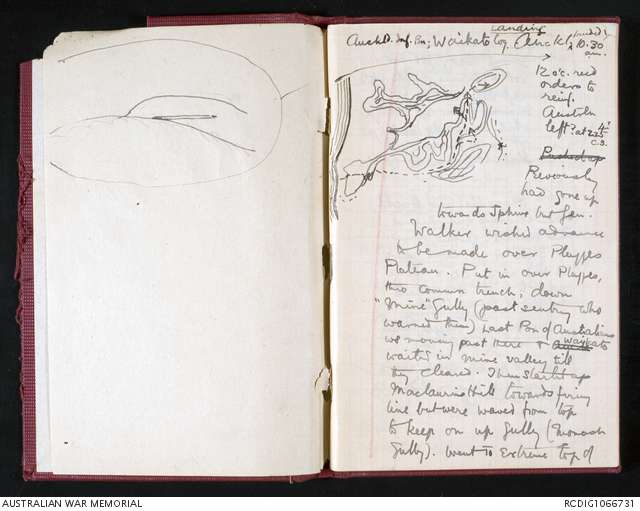 Landing
Auckd. Inf. Bn; Waikato Coy. landed 10.30
am.
12 o'c. recd
orders to
reinf.
Austrln
left? at 225
4?
C.3.
Pushed up
Previously
had gone up
towards Sphinx but Gen.
Walker wished advance
to be made over Plugges
Plateau. Put in over Plugges,
thro commn trench, down
"Mine" Gully (past sentry who
warned them) Last Pon of Australians
was moving past there & Waikato
waited in mine valley till
they cleared. Then started up
Maclaurins Hill towards firing
line but were waved from top
to keep on up Gully (Monash
Gully). Went to extreme top of
AUSTRALIAN WAR MEMORIAL
RCDIG1066731